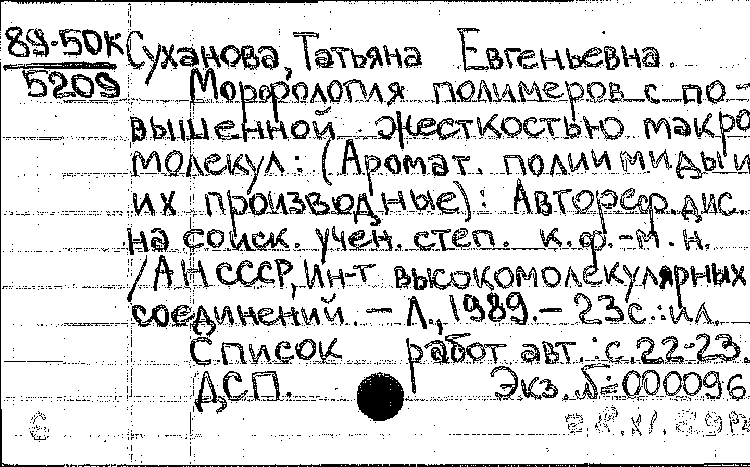 89-50К Суханова, Татьяна Евгеньевна.
5209 Морфология полимеров с по-
вышенной жесткостью макро
молекул: (Аромат. полиимиды и
их производные): Автореф. дис.
на соиск. учен. степ. к.ф.-м.н.
/АН СССР, Ин-т высокомолекулярных
соединений. — Л., 1989. — 23с.: ил.
Список работ авт.: с.22-23.
ДСП. Экз. №000096